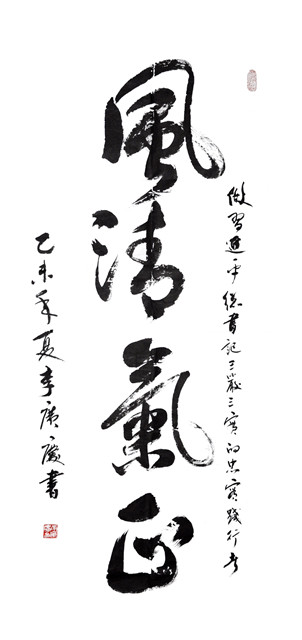 做習近平總書記三嚴三實的忠實踐行者
風清氣正
乙未年夏李廣慶書